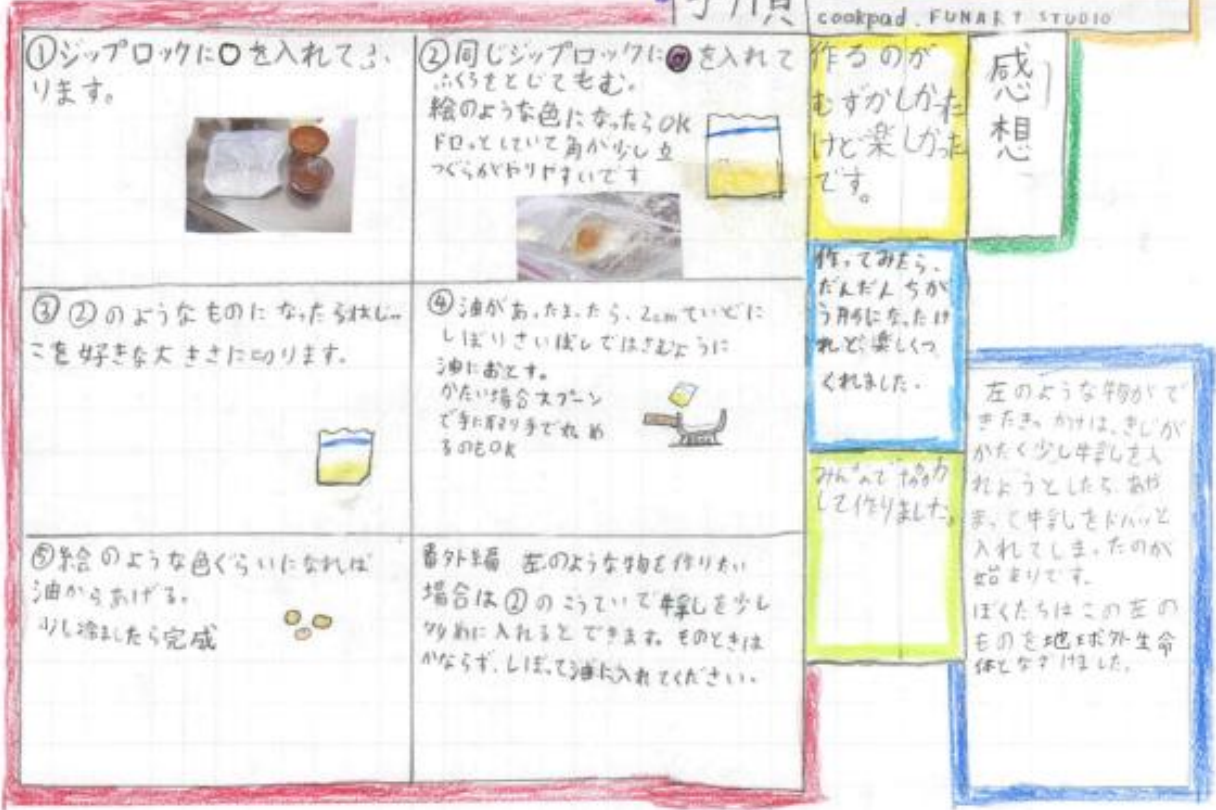 手順
cookpad. FUNART STUDIO
①ジップロックに○を入れてふ
ります。
②同じジップロックに◎を入れて
ふくろをとじてもむ。
絵のような色になったらOK
ドロっとしていて角が少し立
つぐらいがやりやすいです
③②のようなものになったらはじっ
こを好きな大きさに切ります。
④油があったまったら、2cmていどに
しぼりさいばしではさむように
油におとす。
かたい場合スプーン
で手に取り手で丸め
るのもOK
⑤絵のような色ぐらいになれば
油からあげる。
少し冷ましたら完成
番外編 左のような物を作りたい
場合は②のこうていで牛乳を少し
多めに入れるとできます。ものときは
かならず、しぼって油に入れてください。
感想
作るのが
むずかしかった
けど楽しかった
です。
作ってみたら、
だんだんちが
う形になったけ
れど、楽しくつ
くれました。
みんなで協力
して作りました。
左のような物がで
きたきっかけは、きじが
かたく少し牛乳を入
れようとしたら、あや
まって牛乳をドバッと
入れてしまったのが
始まりです。
ぼくたちはこの左の
ものを地球外生命
体となずけました。